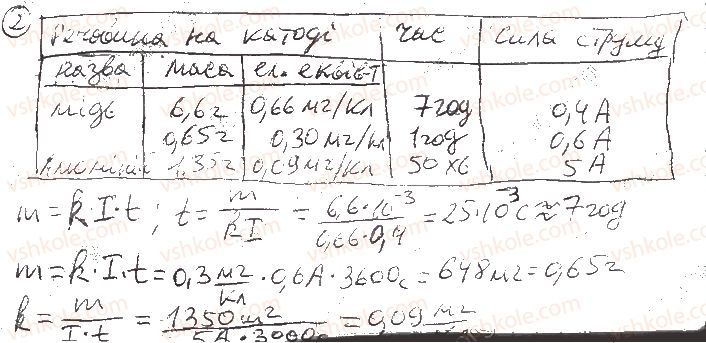 2
Речовина на катоді | час | сила струму
назва | маса | ел. еквів-т
мідь | 6,6г | 0,66 мг/Кл | 7год | 0,4 А
0,65г | 0,30 мг/Кл | 1год | 0,6 А
Алюміній | 1,35г | 0,09 мг/Кл | 50 хв | 5 А
m = k·I·t; t = m/kI = 6,6·10⁻³/0,66·0,4 = 25·10³с ≈ 7год
m = k·I·t = 0,3 мг/Кл · 0,6А · 3600с = 648мг = 0,65г
k = m/I·t = 1350мг/5А·3000с = 0,09 мг/Кл